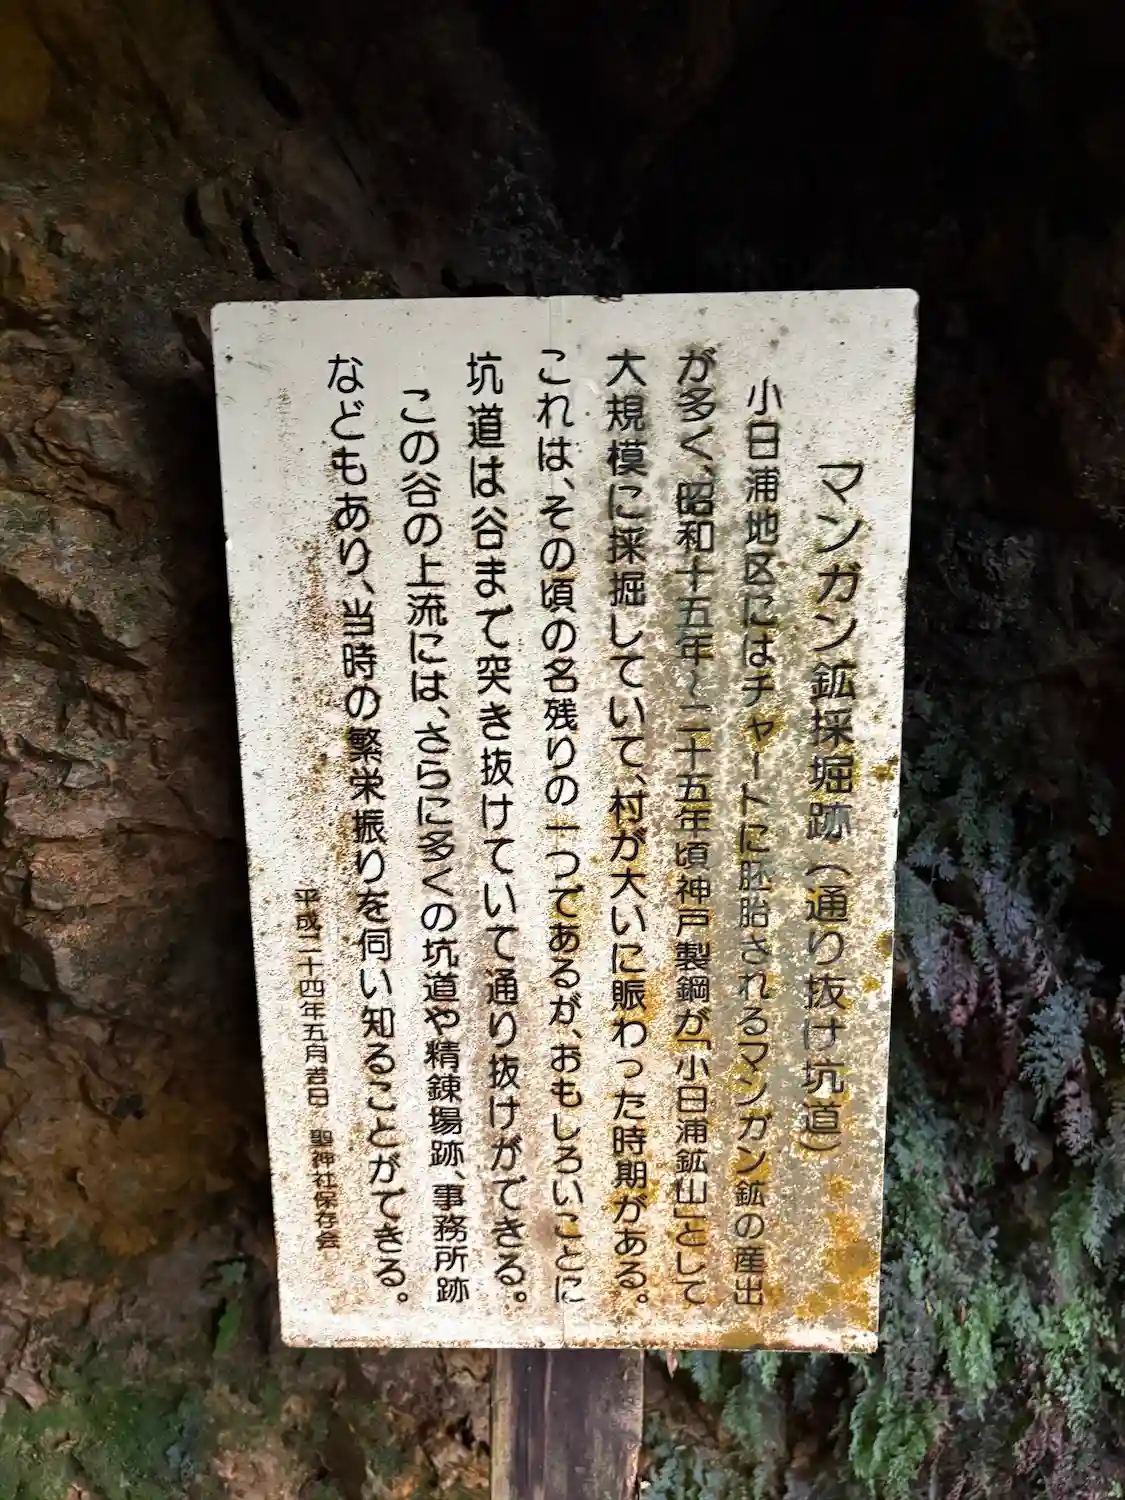 マンガン鉱採堀跡（通り抜け坑道）
小日浦地区にはチャートに胚胎されるマンガン鉱の産出
が多く、昭和十五年～二十五年頃神戸製鋼が「小日浦鉱山」として
大規模に採掘していて、村が大いに賑わった時期がある。
これは、その頃の名残りの一つであるが、おもしろいことに
坑道は谷まで突き抜けていて通り抜けができる。
この谷の上流には、さらに多くの坑道や精錬場跡、事務所跡
などもあり、当時の繁栄振りを伺い知ることができる。
平成二十四年五月吉日 聖神社保存会